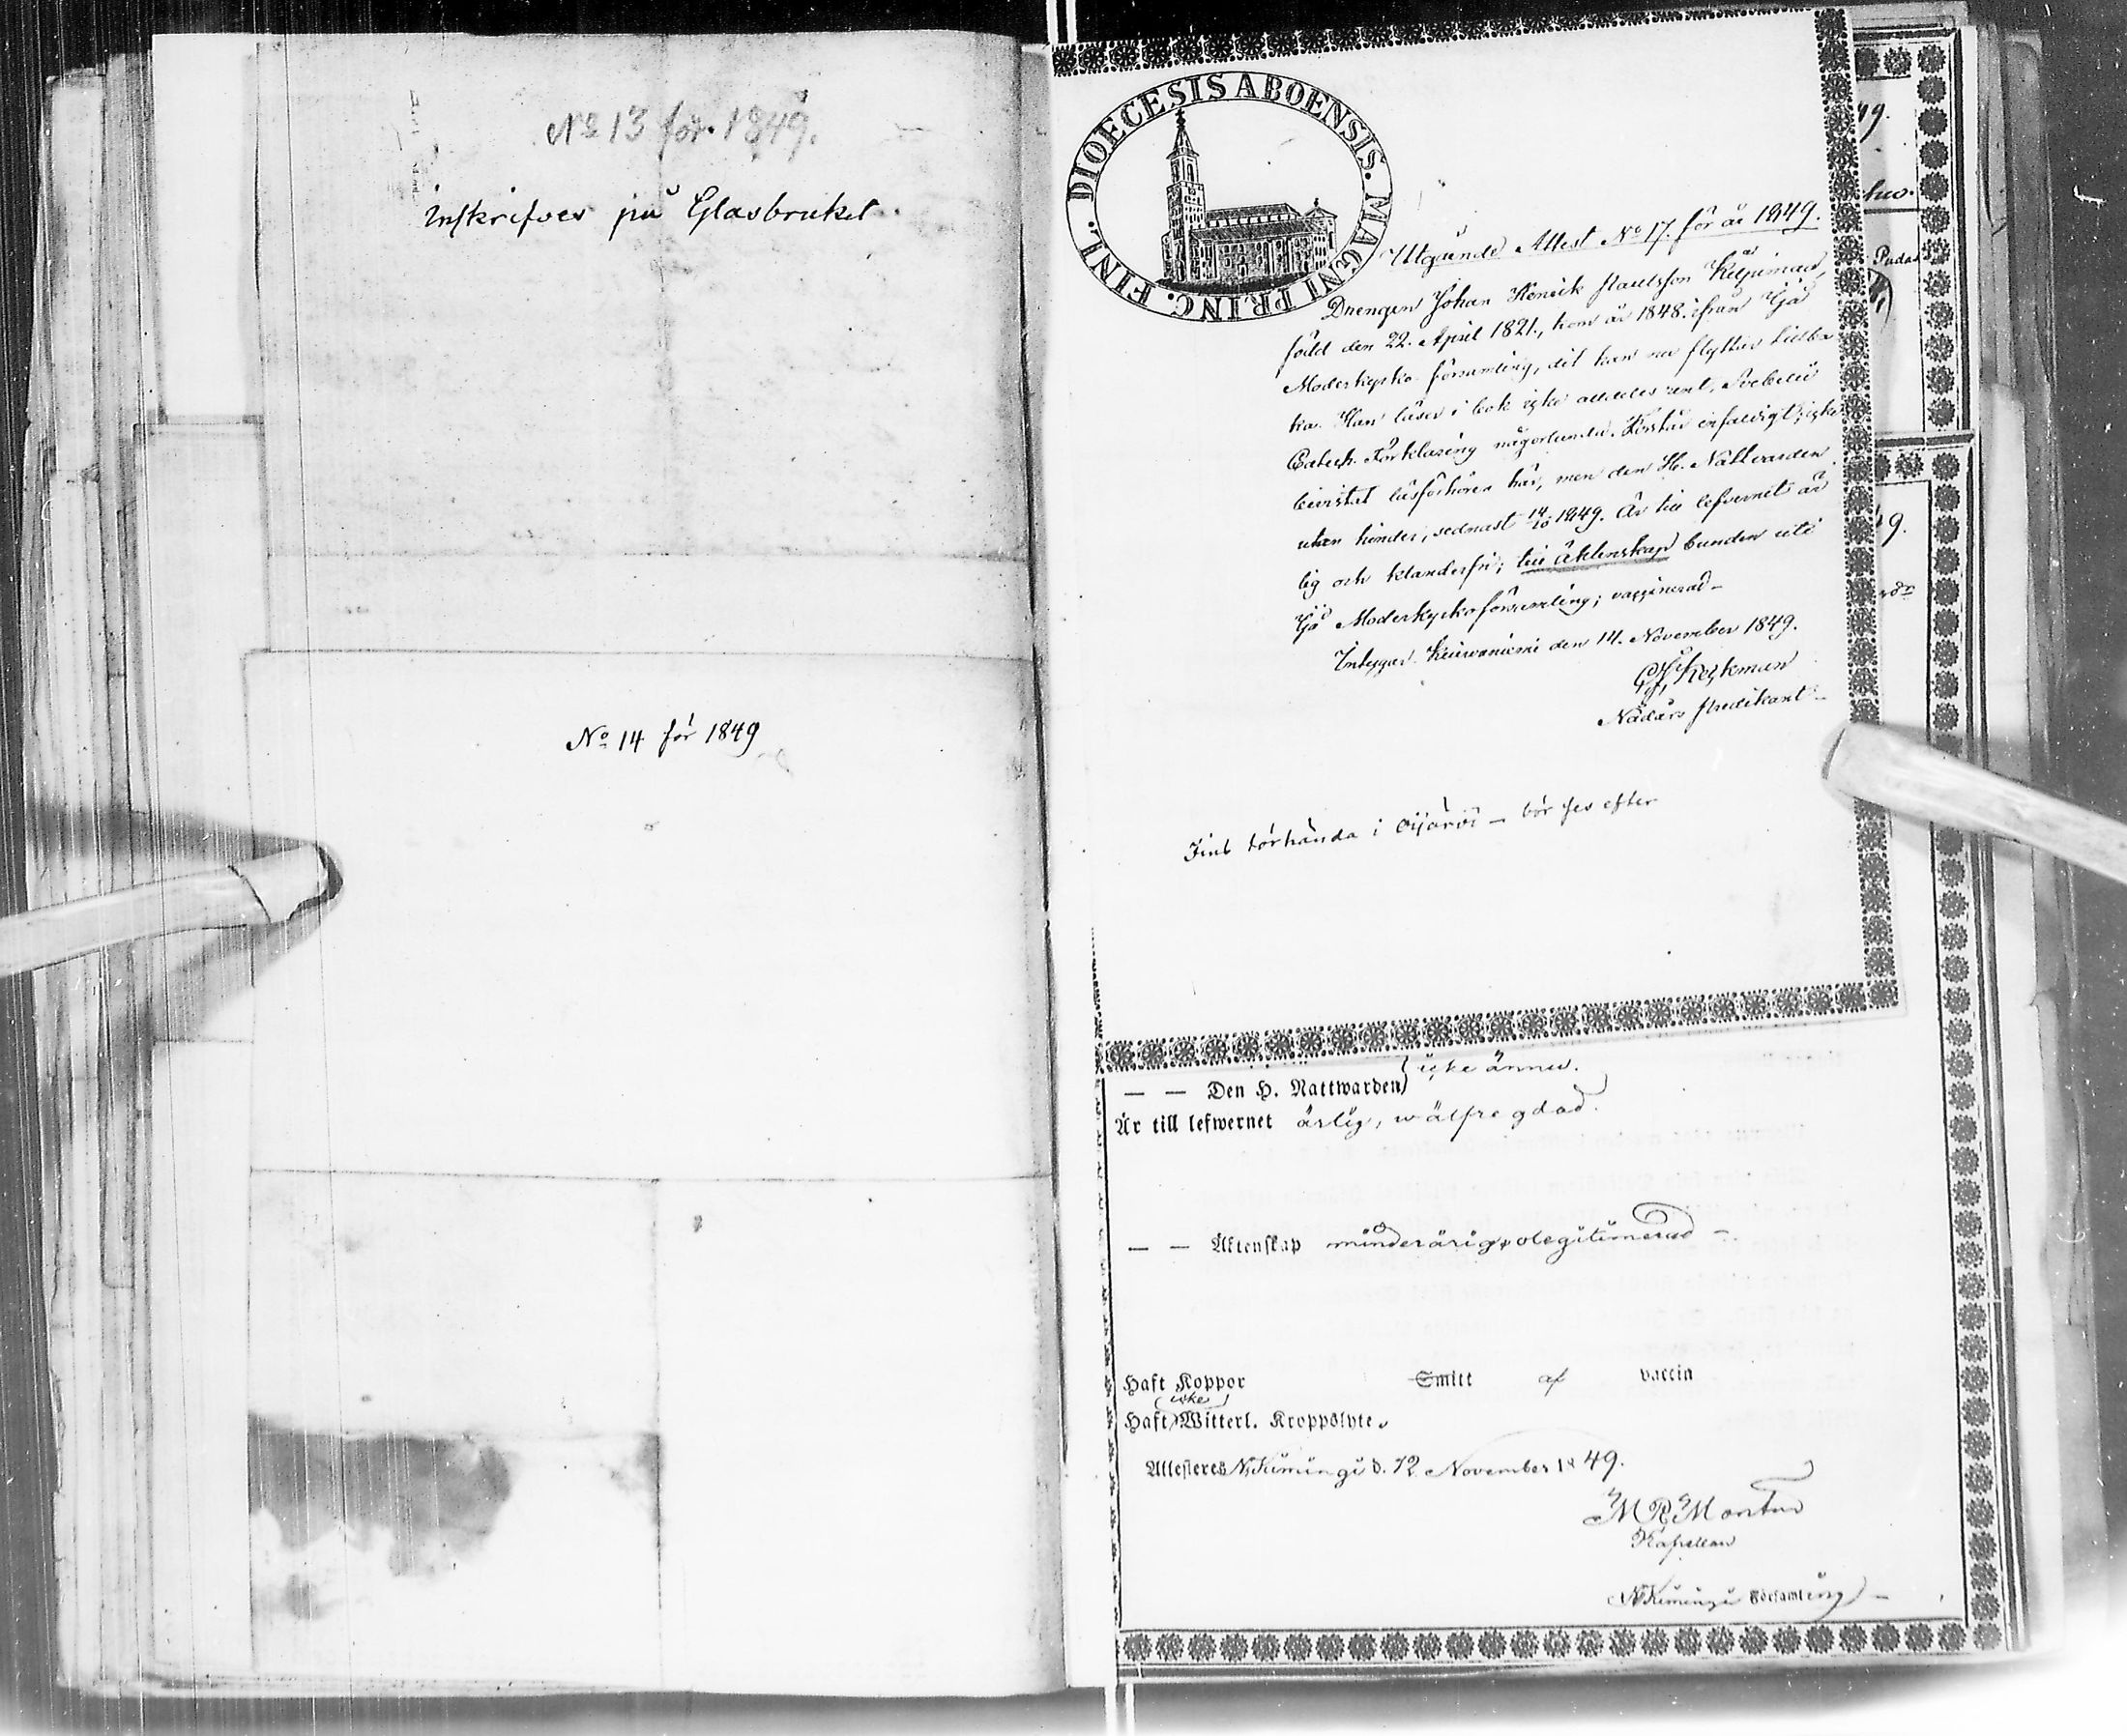 No 13 för 1849.
Inskrifves på Glasbruket.
No 14 för 1849
DIOECESIS ABOENSIS. MAGNI PRINC. FINL.
Utgående Attest No 17. för år 1849.
Drengen Johan Henrik Paulsson
född den 22. April 1821, kom år 1848. ifrån Ijo
Moderkyrko församling, dit han nu flyttar tillba
ka. Han läser i bok icke alldeles rent, Svebelii
Catech. Förklaring någorlunda. Förstår enfaldigt; icke
bevistat läsförhören här, men den H. Nattvarden
utan hinder, sednast 14/10 1849. Är till lefvernet är
lig och klanderfri; till äktenskap bunden uti
Ijo Moderkyrkoförsamling; vaccinerad –
Intygar. Kuivaniemi den 14. November 1849.
Keckman
Nådårs Predikant –
Finl törhända i Oijärvi – bör ses efter
— — Den H. Nattwarden icke ännu.
Är till lefwernet ärlig, wälfregdad.
— — Äktenskap minderårig, olegitimerad –.
Haft Koppor Smitt af vaccin
Haft icke Witterl. Kroppslyte.
Attesteras N. Kiminge d. 12. November 1849.
Kapellan
N. Kiminge Församling –